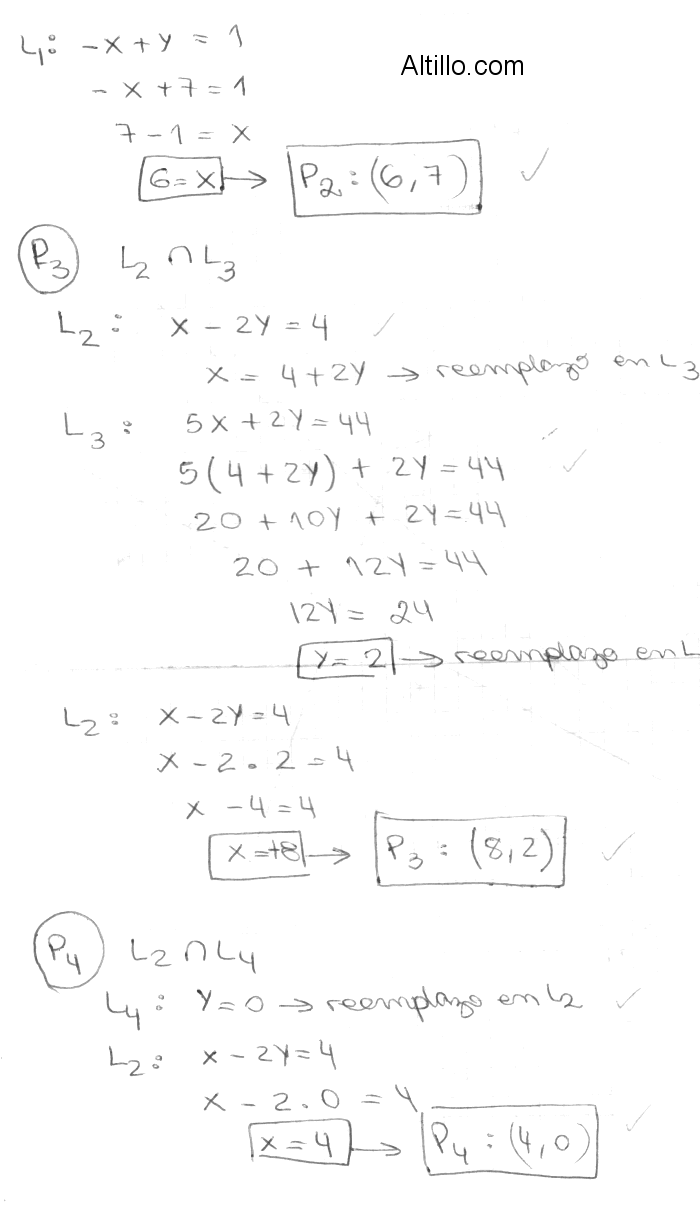 L₁: -x + y = 1
Altillo.com
- x + 7 = 1
7 - 1 = x
6 = x → P₂: (6, 7)
P₃ L₂ ∩ L₃
L₂: x - 2y = 4
x = 4 + 2y → reemplazo en L₃
L₃: 5x + 2y = 44
5(4 + 2y) + 2y = 44
20 + 10y + 2y = 44
20 + 12y = 44
12y = 24
y = 2 → reemplazo en L
L₂: x - 2y = 4
x - 2 . 2 = 4
x - 4 = 4
x = +8 → P₃: (8, 2)
P₄ L₂ ∩ L₄
L₄: y = 0 → reemplazo en L₂
L₂: x - 2y = 4
x - 2 . 0 = 4
x = 4 → P₄: (4, 0)